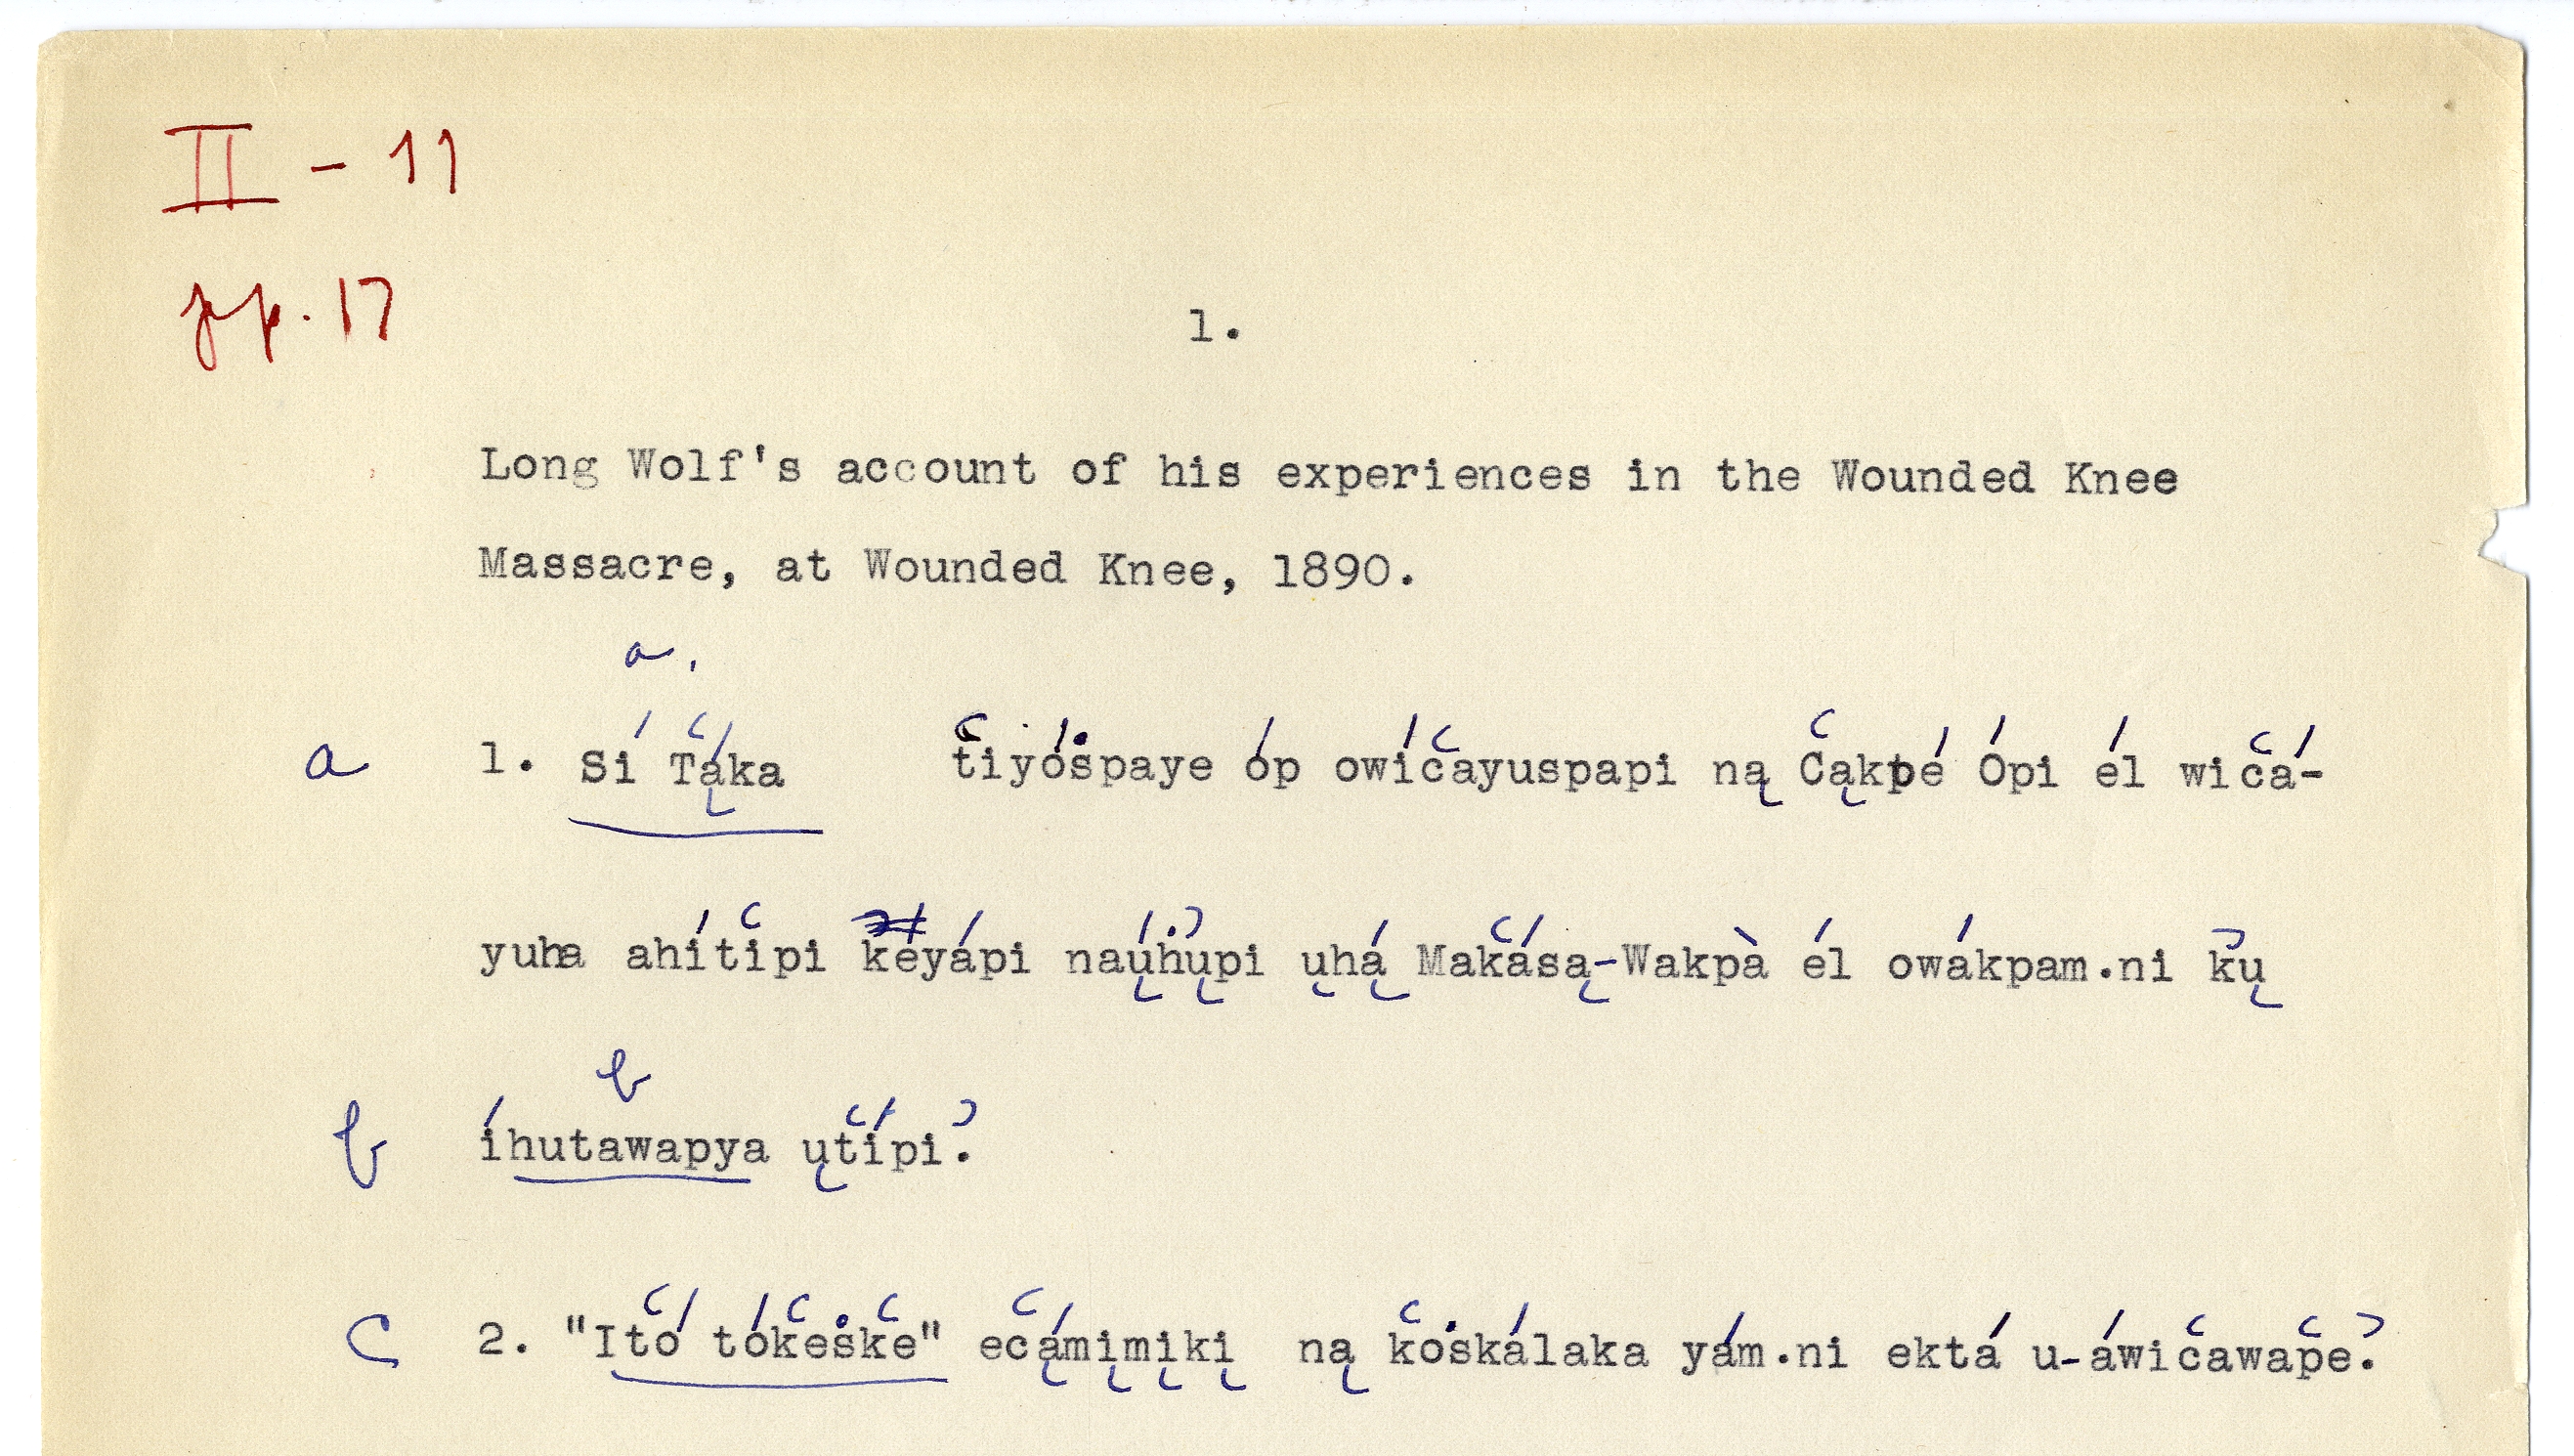 II - 11
pp. 17
1.
Long Wolf's account of his experiences in the Wounded Knee
Massacre, at Wounded Knee, 1890.
a.
a 1. Sí Tʽą́ka tʽiyóṡpaye óp owícʽayuspapi ną Cʽąkpé Ópi él wicʽá-
yuha ahítʽipi keyápi naų́ḣʼųpi ųhą́ Makʽásą-Wakpà él owákpam.ni kʼų
b
b íhutawapya ųtʽípiʼ.
c 2. "Itʽó tókʽeṡkʽe" ecʽą́mįmįkį ną kʽoṡkálaka yám.ni ektá u-áwicʽawapʽeʼ.